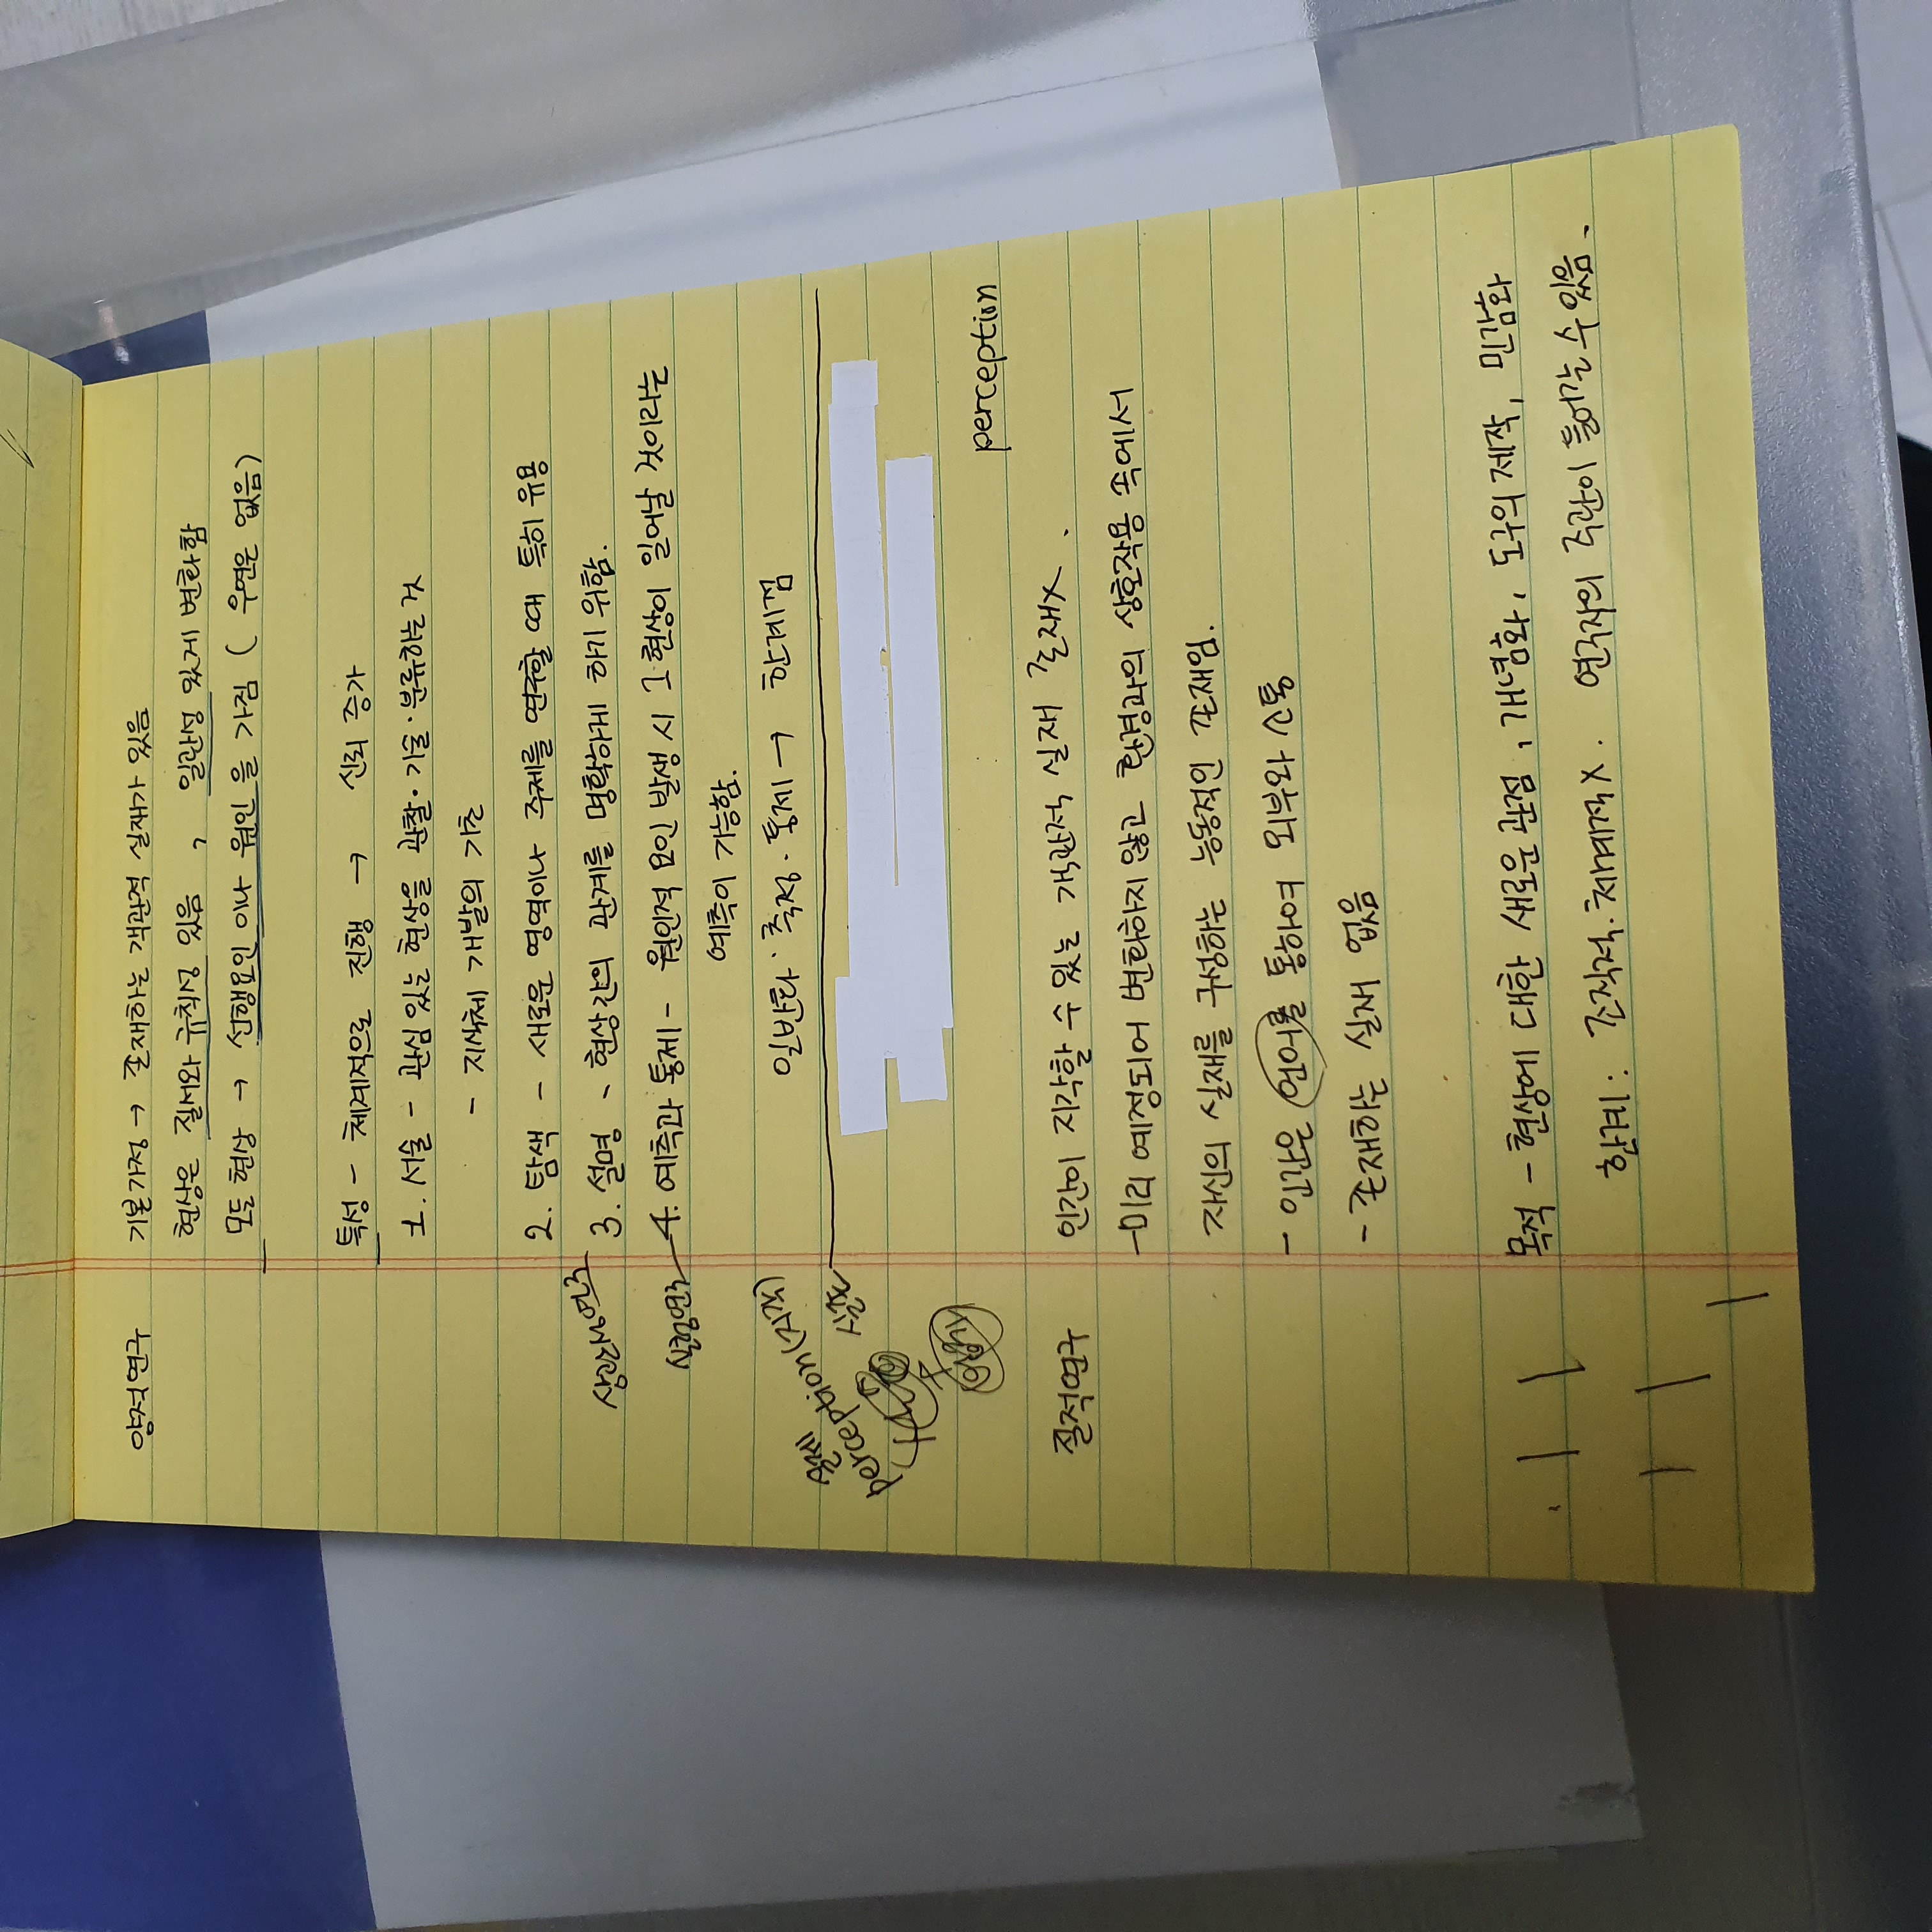 양적연구 기본가정 → 존재하는 객관적 실재가 있음
현상은 질서와 규칙성 있음 , 일관성 있게 변화함
모든 현상 → 선행요인이나 원인을 가짐 ( 우연은 없음)
특성 - 체계적으로 진행 → 신뢰 증가
1. 서술 - 관심있는 현상을 관찰·기술·분류하는 것
- 지식체 개발의 기초
2. 탐색 - 새로운 영역이나 주제를 연구할 때 특히 유용
상관관계연구 3. 설명 、 현상간의 관계를 명확하게 하기 위함.
실험연구 4. 예측과 통제 - 원인적 요인 발생 시 그 현상이 일어날 것이라는
예측이 가능함.
일반화·측정·통제 → 한계점
실재
perception (지각)
실존
perception
질적연구 인간이 지각할 수 있는 객관적 실재 존재X.
-미리 예정되어 변화하지 않고 환경과의 상호작용 속에서
자신의 실재를 구성하는 능동적인 존재임.
- 인간은 언어를 통하여 외부와 소통
- 존재하는 실재 없음
목적 - 현상에 대한 새로운 관점, 개념화, 도구의 제작, 민감화
한계: 조직적·체계적X. 연구자의 주관이 들어갈 수 있음.